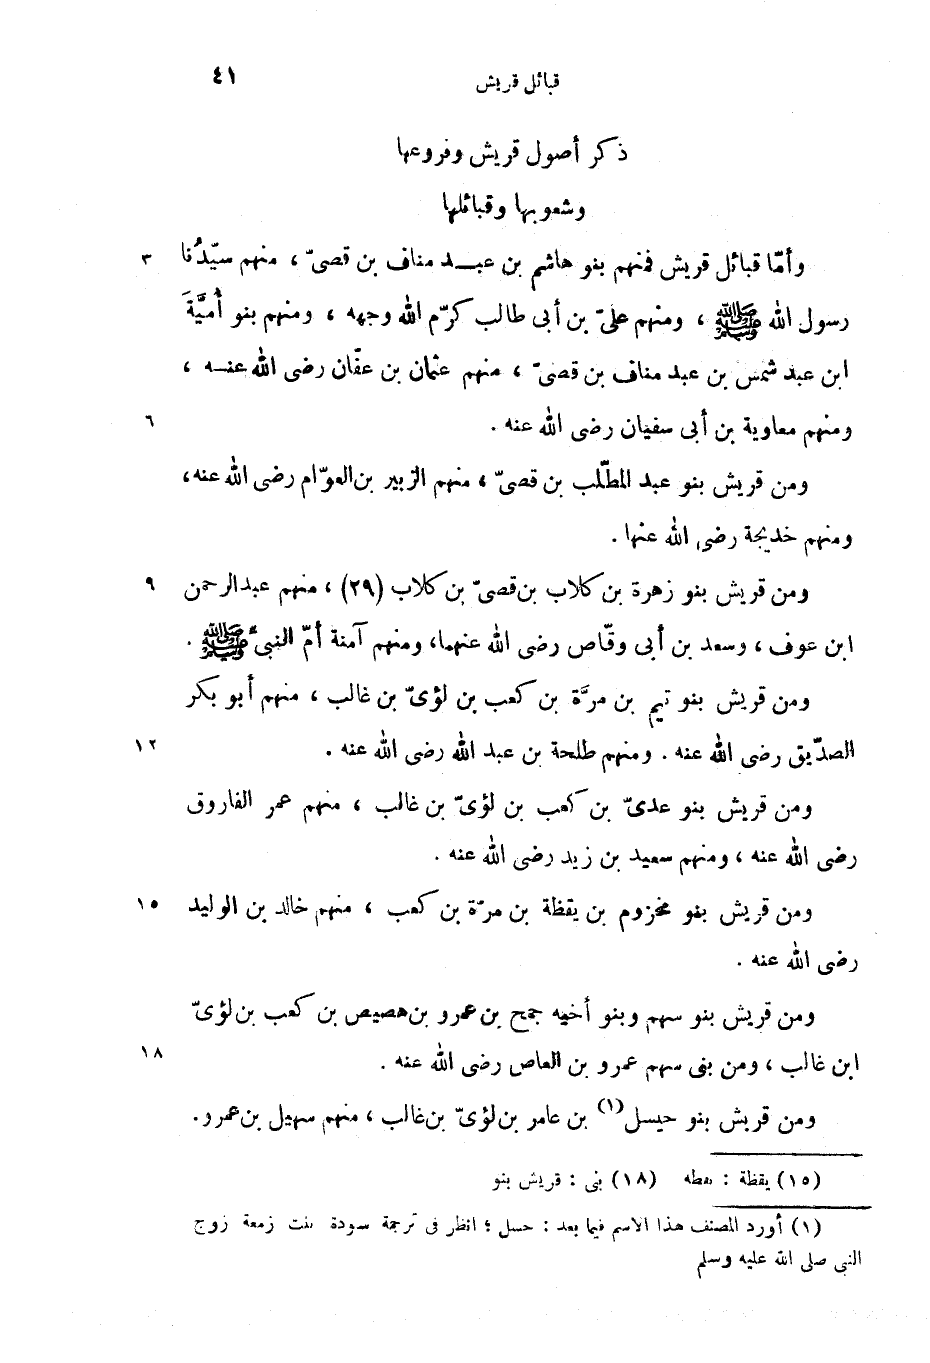 قبائل قريش ٤١
ذكر أصول قريش وفروعها
وشعوبها وقبائلها
وأمّا قبائل قريش فمنهم بنو هاشم بن عبد مناف بن قصىّ ، منهم سيّدُنا ٣
رسول الله ﷺ ، ومنهم علىّ بن أبى طالب كرّم الله وجهه ، ومنهم بنو أُميَّةَ
ابن عبد شمس بن عبد مناف بن قصىّ ، منهم عثمان بن عفّان رضى الله عنه ،
ومنهم معاوية بن أبى سفيان رضى الله عنه . ٦
ومن قريش بنو عبد المطّلب بن قصىّ ، منهم الزبير بن العوّام رضى الله عنه ،
ومنهم خديجة رضى الله عنها .
ومن قريش بنو زهرة بن كلاب بن قصىّ بن كلاب (٢٩) ، منهم عبد الرحمن ٩
ابن عوف ، وسعد بن أبى وقّاص رضى الله عنهما، ومنهم آمنة أمّ النبىّ ﷺ .
ومن قريش بنو تيم بن مرَّة بن كعب بن لؤىّ بن غالب ، منهم أبو بكر
الصدّيق رضى الله عنه . ومنهم طلحة بن عبد الله رضى الله عنه . ١٢
ومن قريش بنو عدىّ بن كعب بن لؤىّ بن غالب ، منهم عمر الفاروق
رضى الله عنه ، ومنهم سعيد بن زيد رضى الله عنه .
ومن قريش بنو مخزوم بن يقظة بن مرّة بن كعب ، منهم خالد بن الوليد ١٥
رضى الله عنه .
ومن قريش بنو سهم وبنو أخيه جمح بن عمرو بن هصيص بن كعب بن لؤىّ
ابن غالب ، ومن بنى سهم عمرو بن العاص رضى الله عنه . ١٨
ومن قريش بنو حيسل(١) بن عامر بن لؤىّ بن غالب ، منهم سهيل بن عمرو .
(١٥) يقظة : ىقطه (١٨) بنى : قريش بنو
(١) أورد المصنف هذا الاسم فيما بعد : حسل ؛ انظر فى ترجمة سودة بنت زمعة زوج
النبى صلى الله عليه وسلم